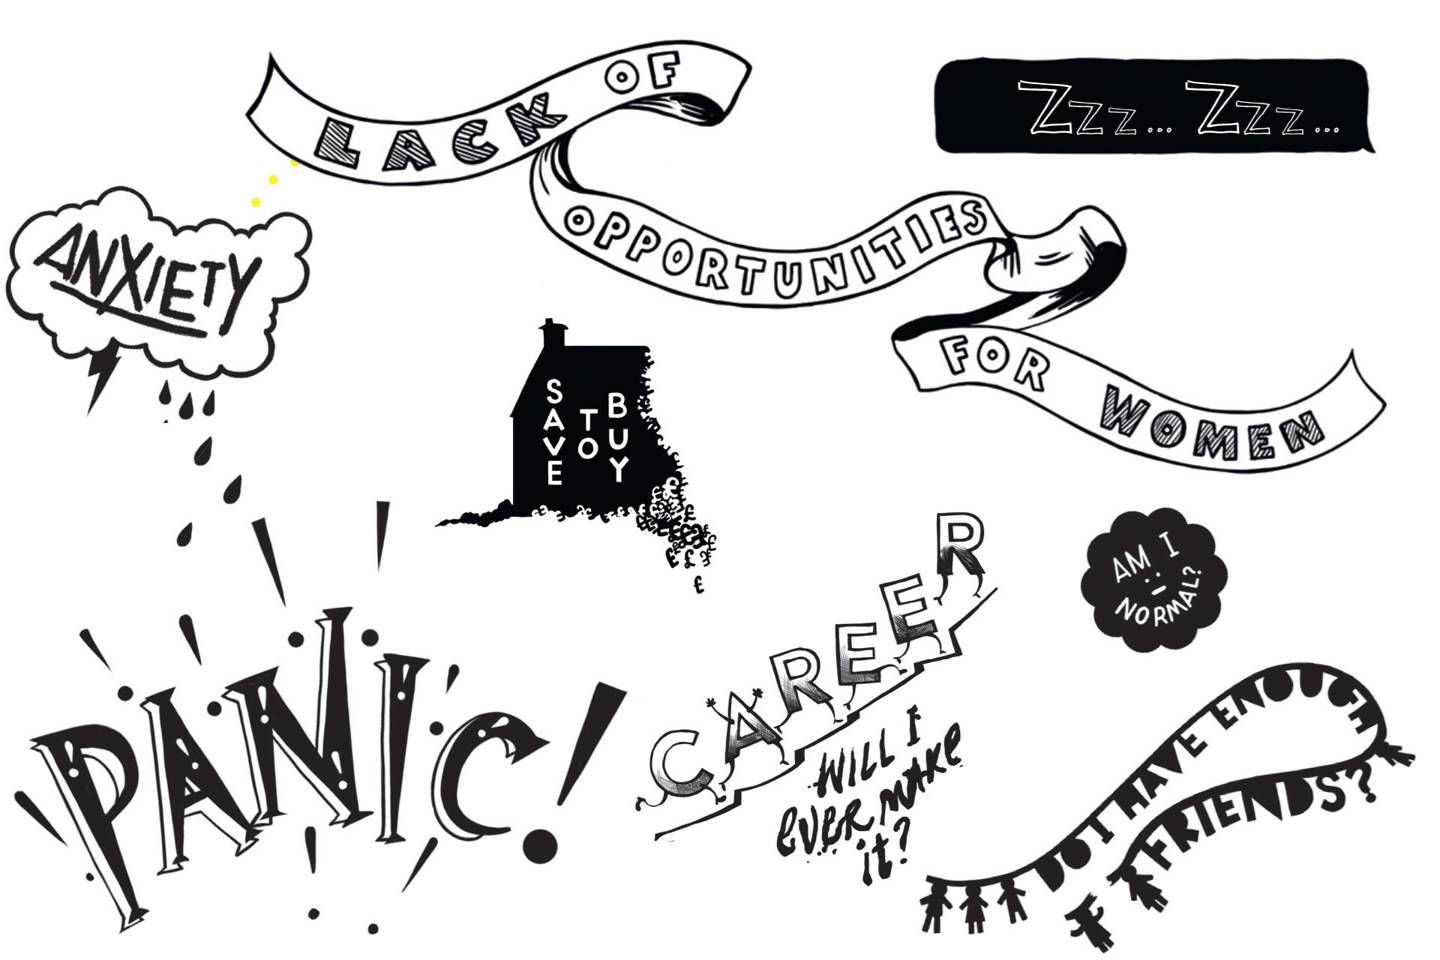 LACK OF
OPPORTUNITIES
FOR WOMEN
Zzz... Zzz...
ANXIETY
SAVE
TO
BUY
AM I
NORMAL?
PANIC!
CAREER
WILL I
EVER MAKE
it?
DO I HAVE ENOUGH
FRIENDS?